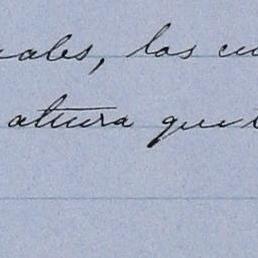 uales, las cu
altura que